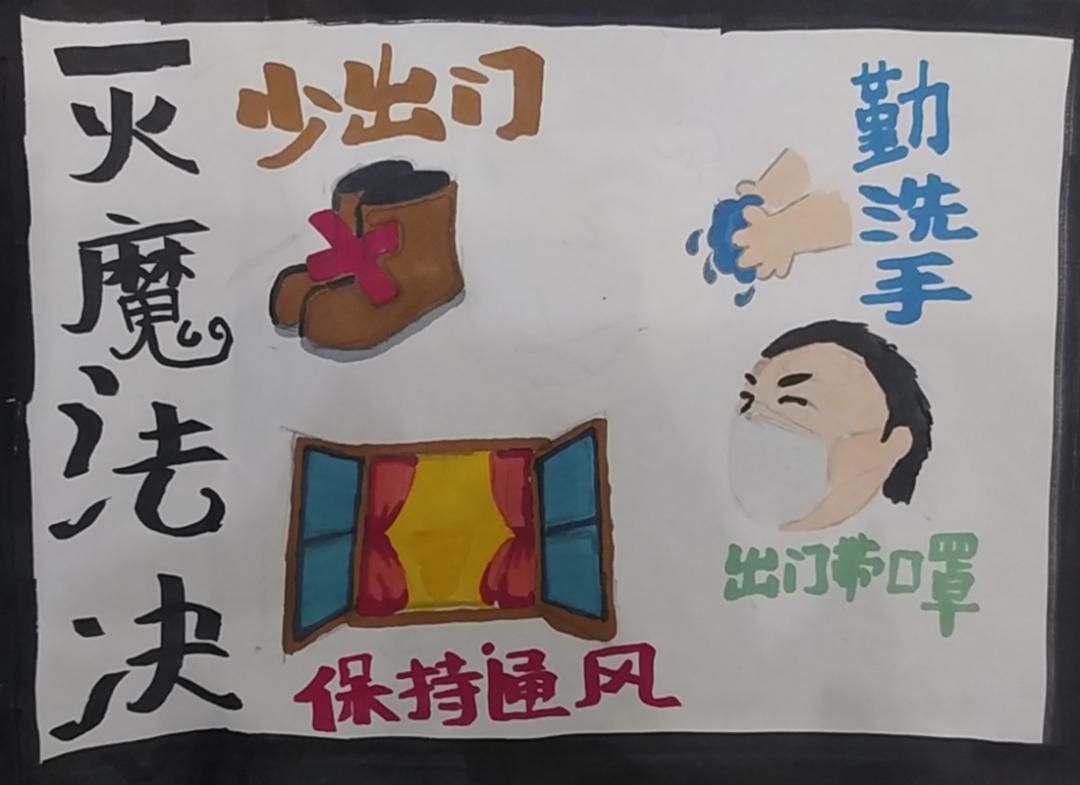 灭魔法决
少出门
勤洗手
出门带口罩
保持通风